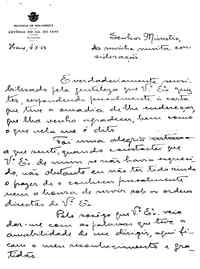 Senhor Ministro,
da minha muita con-
sideração
É verdadeiramente sensi-
bilizado pela gentileza que Vª Exª quiz
ter, respondendo pessoalmente à carta
que tive a ousadia de lhe endereçar,
que lhe venho agradecer, bem como
o que nela me é dito
Foi uma alegria
a que senti, quando constatei que
Vª Exª de mim se não havia esqueci-
do, não obstante eu não ter tido ainda
o prazer de o conhecer pessoalmente
nem a honra de servir sob as ordens
directas de Vª Exª
Pelo sacrifício que Vª Exª
dar-me com as palavras que teve a
amabilidade de me dirigir, aqui fi-
cam o meu reconhecimento e gra-
tidão